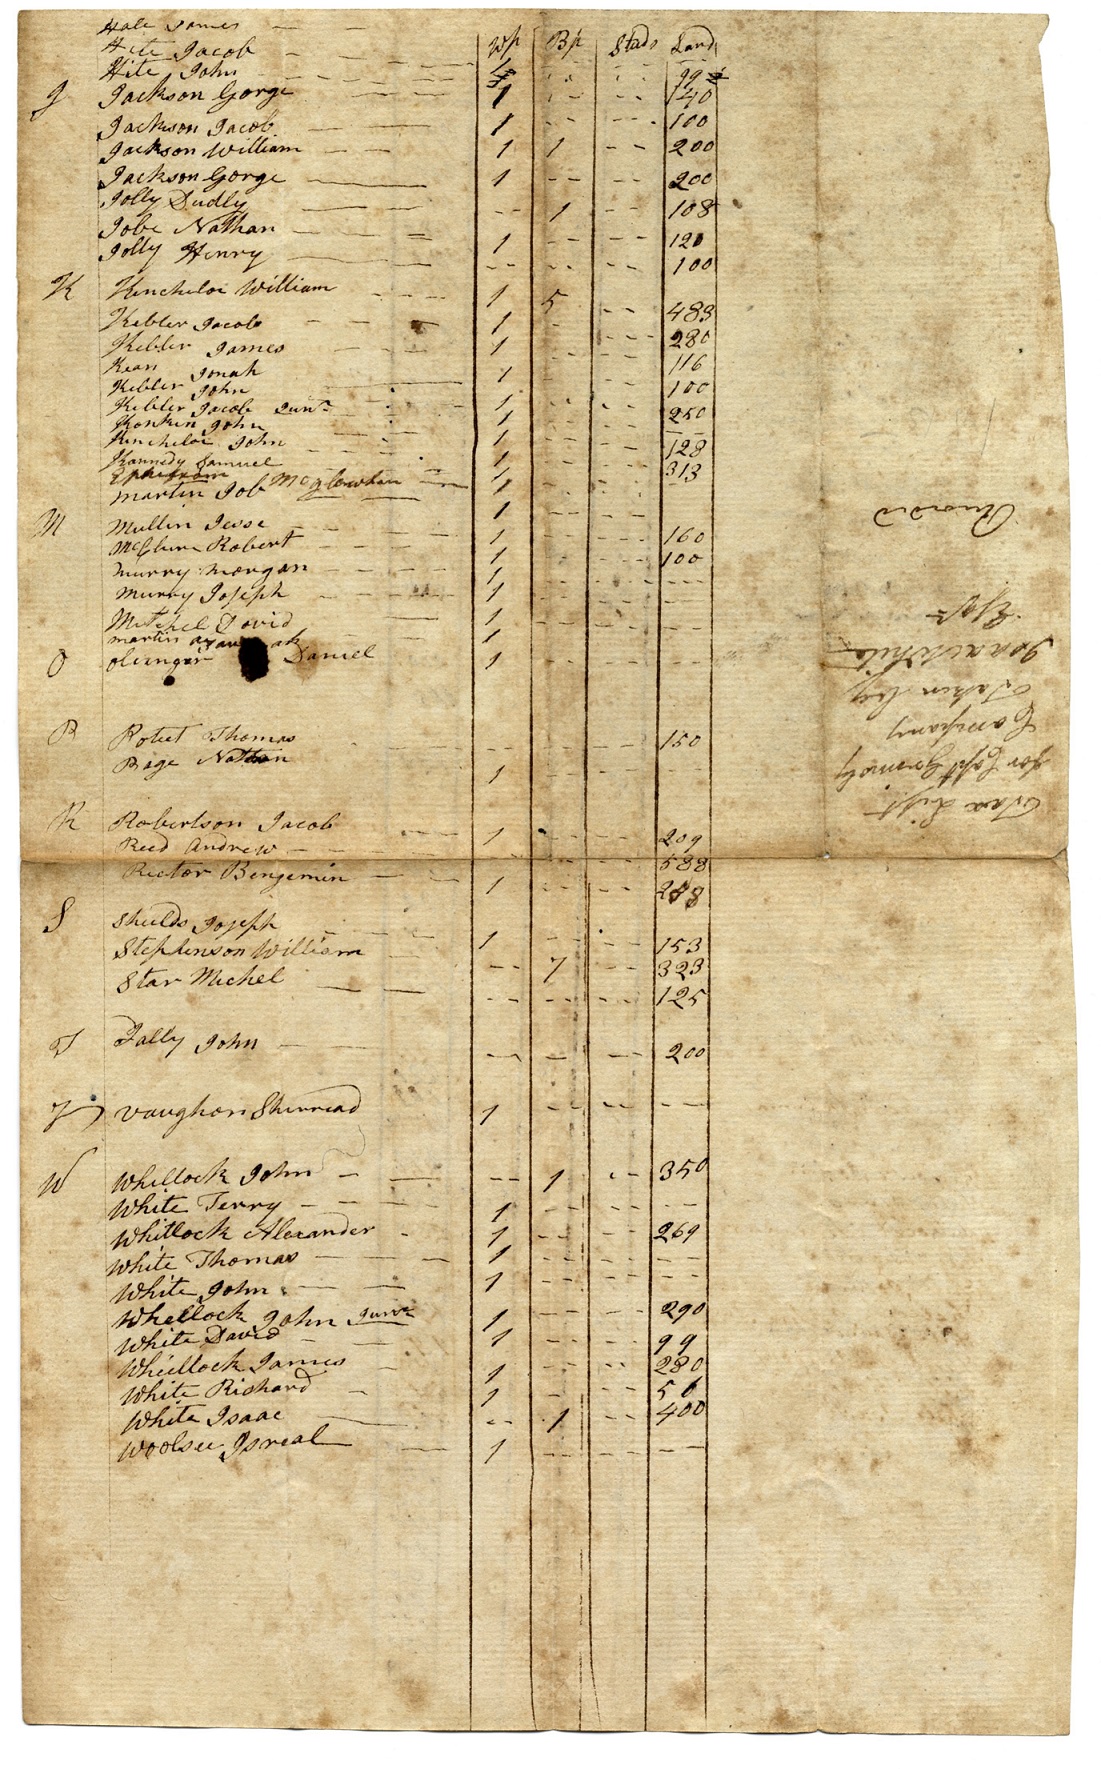 Hale James
Wp Bp Studs Land
Hite Jacob 1
Hite John 99
J Jackson Gorge 1 140
Jackson Jacob 1 100
Jackson William 1 1 200
Jackson Gorge 1 200
Jolly Dudly 1 108
Jobe Nathan 1 120
Jolly Henry 100
K Kincheloe William 1 5 483
Kebler Jacob 1 280
Kebler James 1 116
Kean Jonah 1 100
Kebler John
Kebler Jacob Junr 1 250
Konkin John 1
Kincheloe John 1 128
Kannedy Samuel 1 313
Ephraim
Martin Job 1
M Mullin Jesse 1 160
McClure Robert 1 100
Murry Morgan 1
Murry Joseph 1
Mitchel David 1
Martin 1
O Olinger Daniel 1
P Poteet Thomas 150
Page Nathan 1
R Robertson Jacob 1 209
Reed Andrew 588
Rector Bengemin 1
S Shields Joseph 1 153
Stephenson William 7 323
Star Michel 125
T Tally John 200
V Vaughon Sherread 1
W Whillock John 1 350
White Terry 1
Whitlock Alexander 1 269
White Thomas 1
White John 1
Whellock John Junr 1 290
White David 1 99
Wheellock James 1 280
White Richard 1 56
White Isaac 1 400
Woolsee Isreal 1
Taxa List
for Capt Gremsly
Company
Taken by
Isaac White
Esqr